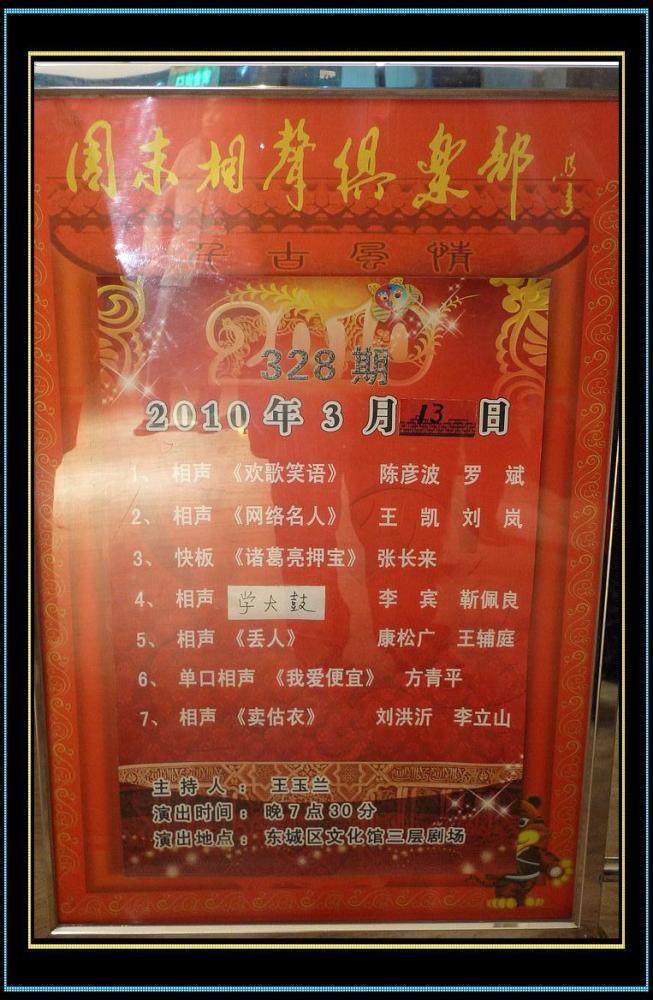 周末相聲俱樂部
古風情
2010
328期
2010年3月13日
1、 相声 《欢歌笑语》 陈彦波 罗 斌
2、 相声 《网络名人》 王 凯 刘 岚
3、 快板 《诸葛亮押宝》 张长来
4、 相声 学大鼓 李 宾 靳佩良
5、 相声 《丢人》 康松广 王辅庭
6、 单口相声 《我爱便宜》 方青平
7、 相声 《卖估衣》 刘洪沂 李立山
主 持 人 : 王玉兰
演出时间 : 晚7点30分
演出地点 : 东城区文化馆三层剧场